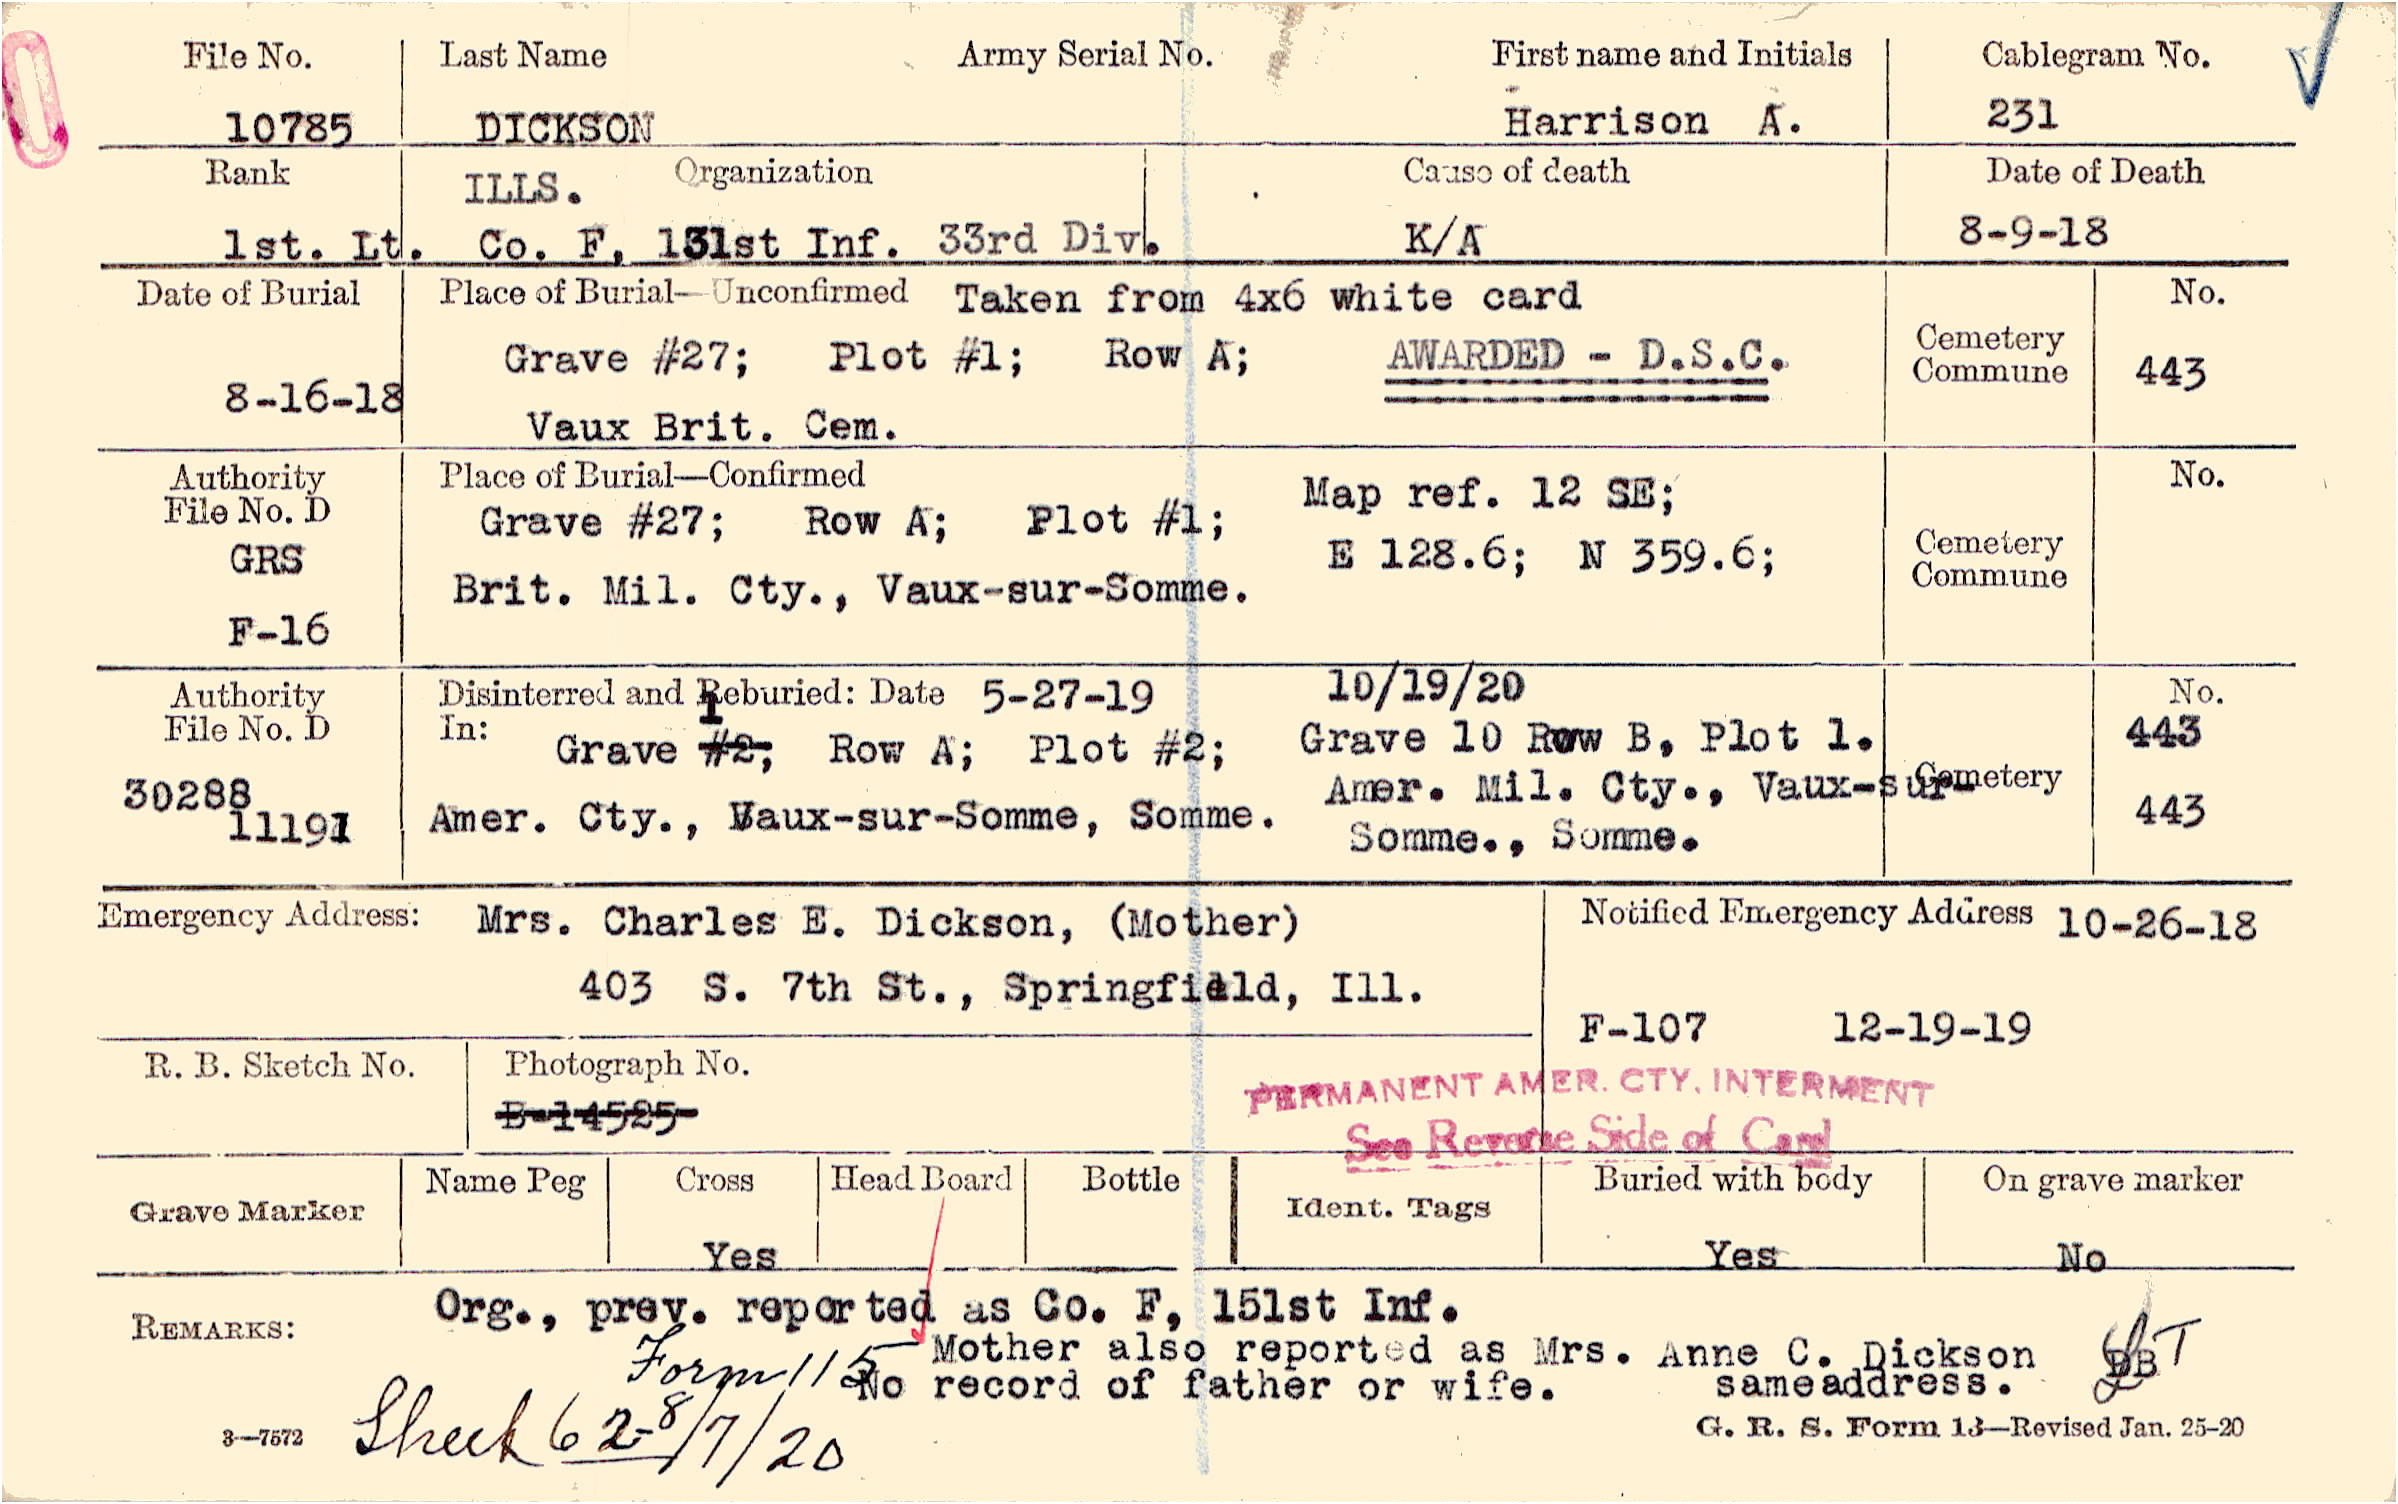 File No. Last Name Army Serial No. First name and Initials Cablegram No.
10785 DICKSON Harrison A. 231
Rank Organization Cause of death Date of Death
ILLS.
1st. Lt. Co. F, 131st Inf. 33rd Div. K/A 8-9-18
Date of Burial Place of Burial—Unconfirmed Taken from 4x6 white card No.
Grave #27; Plot #1; Row A; AWARDED - D.S.C. Cemetery
Commune 443
8-16-18
Vaux Brit. Cem.
Authority Place of Burial—Confirmed No.
File No. D Grave #27; Row A; Plot #1; Map ref. 12 SE;
GRS E 128.6; N 359.6; Cemetery
Commune
Brit. Mil. Cty., Vaux-sur-Somme.
F-16
Authority Disinterred and Reburied: Date 5-27-19 10/19/20 No.
File No. D In: 1
Grave #2; Row A; Plot #2; Grave 10 Row B, Plot 1. 443
30288 Amer. Mil. Cty., Vaux-sur- Cemetery
11191 Amer. Cty., Vaux-sur-Somme, Somme. Somme., Somme. 443
Emergency Address: Mrs. Charles E. Dickson, (Mother) Notified Emergency Address 10-26-18
403 S. 7th St., Springfield, Ill.
F-107 12-19-19
R. B. Sketch No. Photograph No.
B-14525
PERMANENT AMER. CTY. INTERMENT
See Reverse Side of Card
Grave Marker Name Peg Cross Head Board Bottle Ident. Tags Buried with body On grave marker
Yes Yes No
REMARKS: Org., prev. reported as Co. F, 151st Inf.
Form 115 Mother also reported as Mrs. Anne C. Dickson
No record of father or wife. sameaddress.
3—7572 Sheet 62- 8/7/20 G. R. S. Form 13—Revised Jan. 25-20